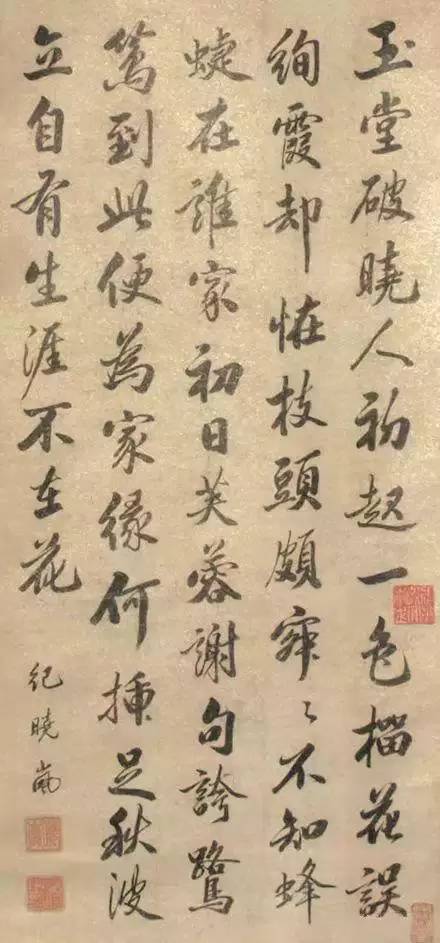 玉堂破曉人初起一色榴花誤
絢霞却恠枝頭頗寂〻不知蜂
蜨在誰家初日芙蓉謝句誇鷺
篤到此便為家緣何捶足秋波
立自有生涯不在花
紀曉嵐